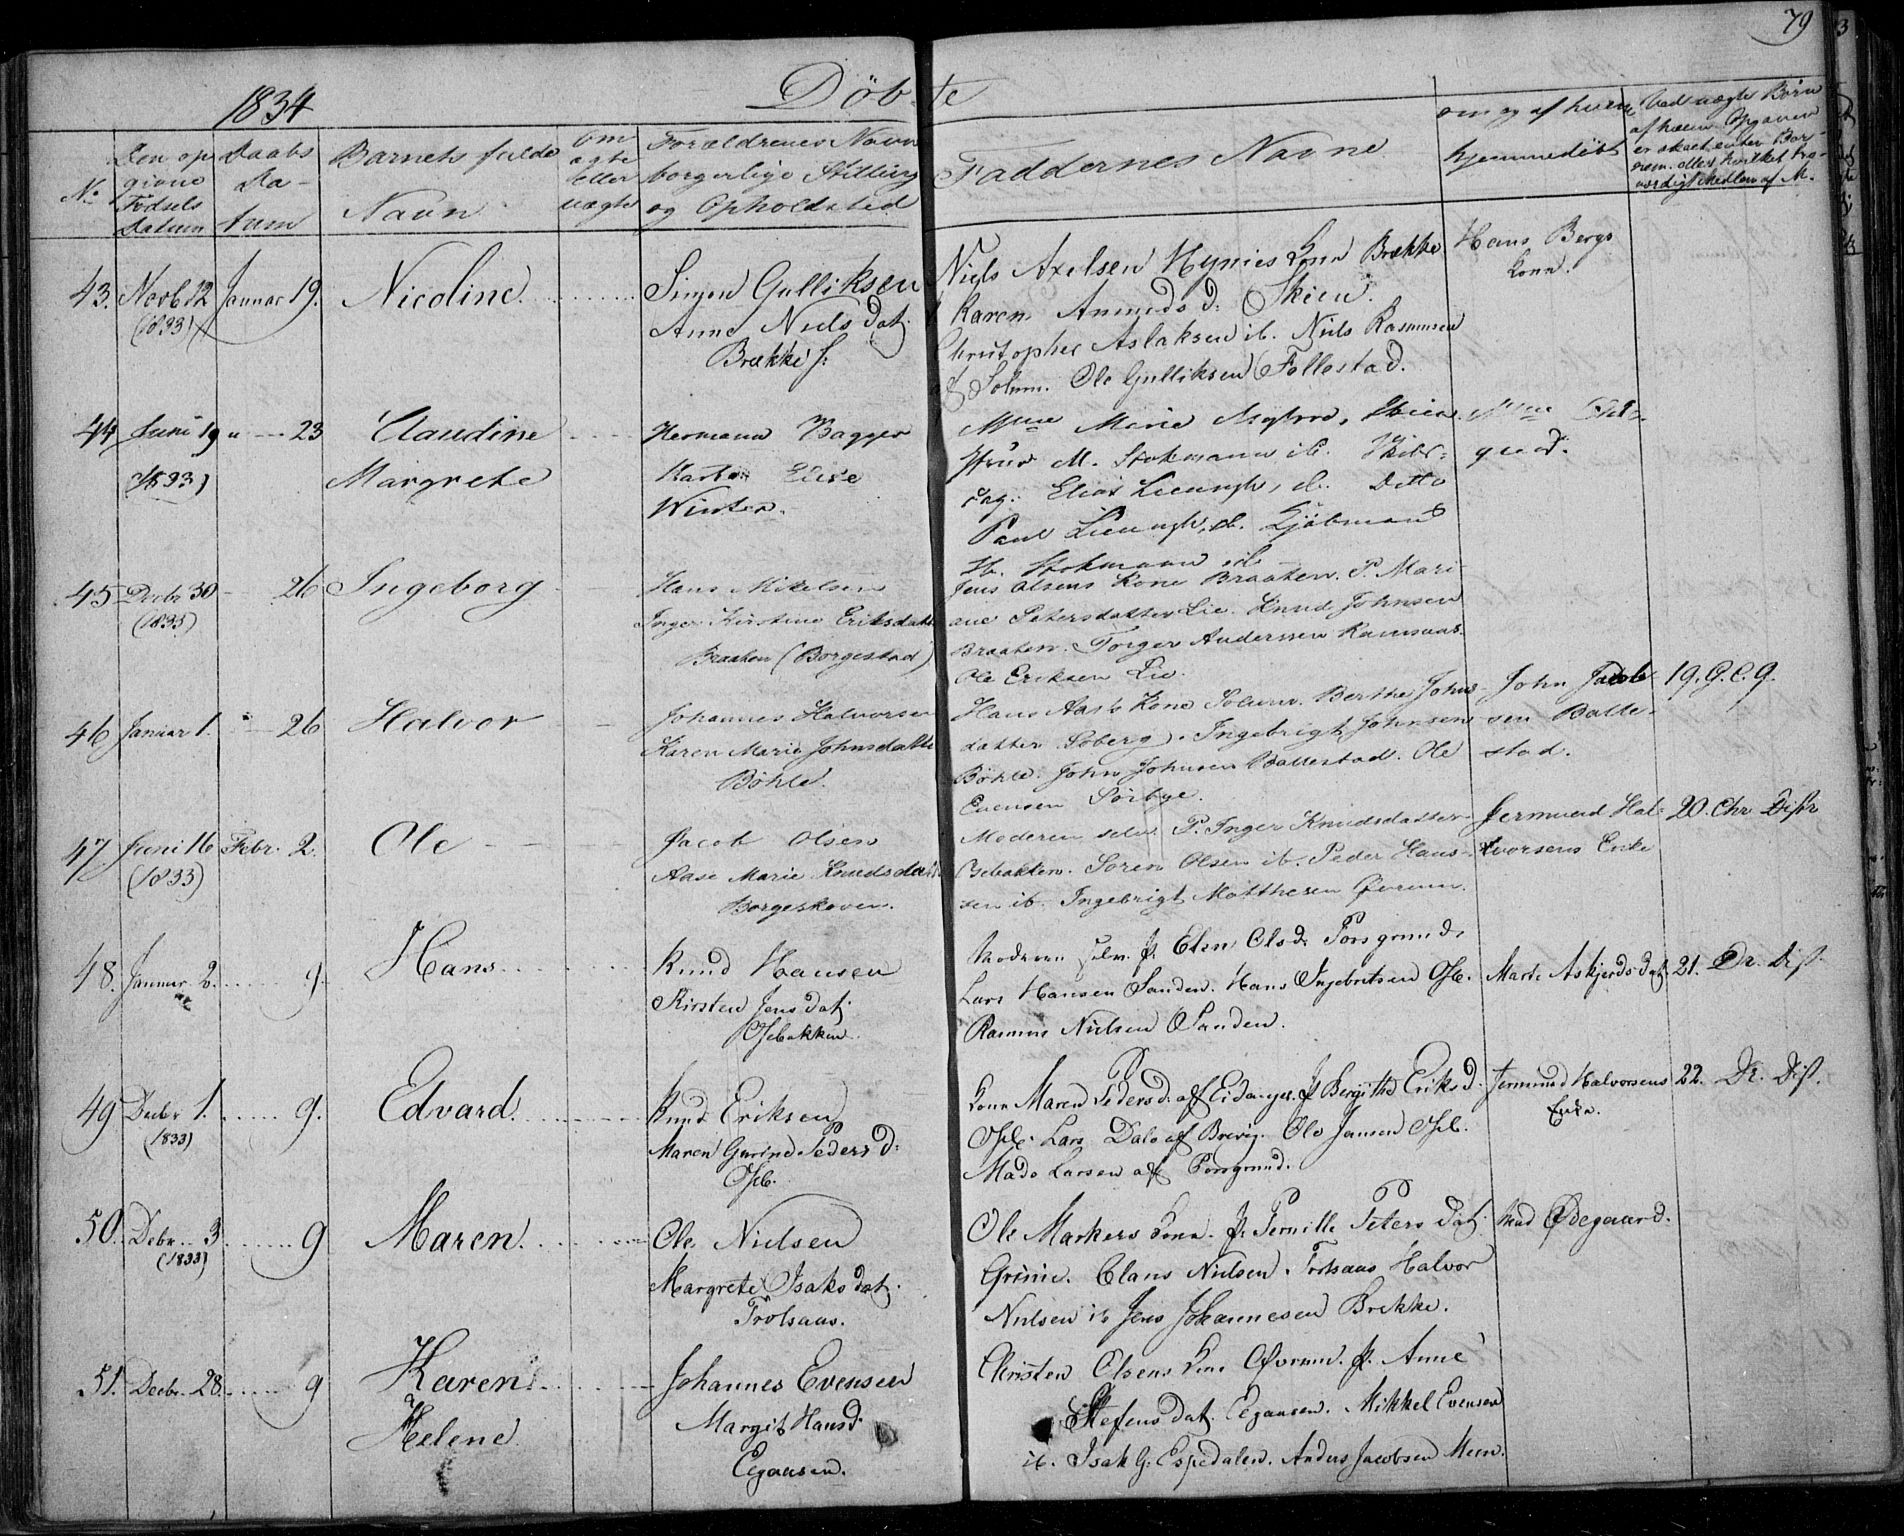 79
1834
Döbte
No
Den op
givne
Födsels
Datum
Daabs
Da-
tum
Barnets fulde
Navn
Om
ægte
eller
uægte
Forældrenes Navn
borgerlige Stilling
og Opholdsted
Faddernes Navne
om og af hvem
hjemmedöbt
Ved uægte Börn
43. Novb 12 Januar 19. Nicoline.
(1833)
Simon Gulliksen
Anne Nielsdat.
Brække f.
Niels Axelsen Kone Brække
Karen Amundsd: Skien.
Christopher Aslaksen ib. Niels Rasmusen
af Solum. Ole Gulliksen Follestad.
Hans Bergs
Kone.
44 Juni 19 " — 23 Claudine
(1833)
Margrete
Hermann Bagger
Elise
Winter.
Mme Marie Skien.
Frue M. Stokmann ib.
Elias Lieungh, ib. Ditto
Paul Lieungh, ib. Kjöbmand
H. Stokmann ib.
Mme
45 Decbr 30 — 26 Ingeborg
Hans Mikelsen
Inger Kirstine Eriksdatter
Braaten (Borgestad)
Jens Olsens Kone Braaten. P. Mari
ane Petersdatter Lie. Knud Johnsen
Braaten. Torger Anderssen
Ole Eriksen Lie.
46 Januar 1. — 26 Halvor
Johannes Halvorsen
Karen Marie Johnsdatter
Böhle.
Hans Aas's Kone Solum. Berthe Johns-
datter Soberg. Ingebrigt Johnsen
Böhle. John Johnsen Ballestad. Ole
Evensen Sörbye.
John Jacob-
sen Balle-
stad.
19. G. C. G.
47. Juni 16 Febr. 2. Ole
(1833)
Jacob Olsen
Aase Marie Knudsdatter
Borgeskoven.
Moderen selv. P. Inger Knudsdatter
Osebakken. Sören Olsen ib. Peder Han-
sen ib. Ingebrigt Matthesen Överum.
Jermund Hal-
vorsens Enke
20. Chr Distr
48. Januar 2. 9. Hans
Knud Hansen
Kirsten Jensdat.
Osebakken.
Moderen selv. P. Elen Olsd: Porsgrund.
Lars Hansen Sanden. Hans Ingebretsen Oseb.
Rasmus Nielsen Sanden.
Mart. Askjersdat.
21. Dr. Dist.
49 Decbr 1. 9. Edvard.
(1833)
Knud Eriksen
Maren Gurine Pedersd:
Oseb.
Kone Maren Pedersd. af Eidanger. P Bergithe Eriksd.
Oseb. Lars Dale af Brevig. Ole Jansen Oseb.
Mads Larsen af Porsgrund.
Jermund Halvorsens
Enke.
22. Dr. Dist.
50. Debr. 3 9 Maren.
(1833)
Ole Nielsen
Margrete Isaksdat.
Trolsaas.
Ole Markers Kone. P. Pernille Petersdat.
Grinie. Claus Nielsen. Trolsaas Halvor
Nielsen ib Jens Johannesen Brekke.
Mad Ödegaard.
51. Decbr. 28. 9 Karen
Helene
Johannes Evensen
Margit Hansd.
Eegaasen.
Christen Olsens Kone Överum. P. Anne
Stefensdat. Eegaasen. Mikkel Evensen
ib. Isak G. Espedalen. Anders Jacobsen Meen.